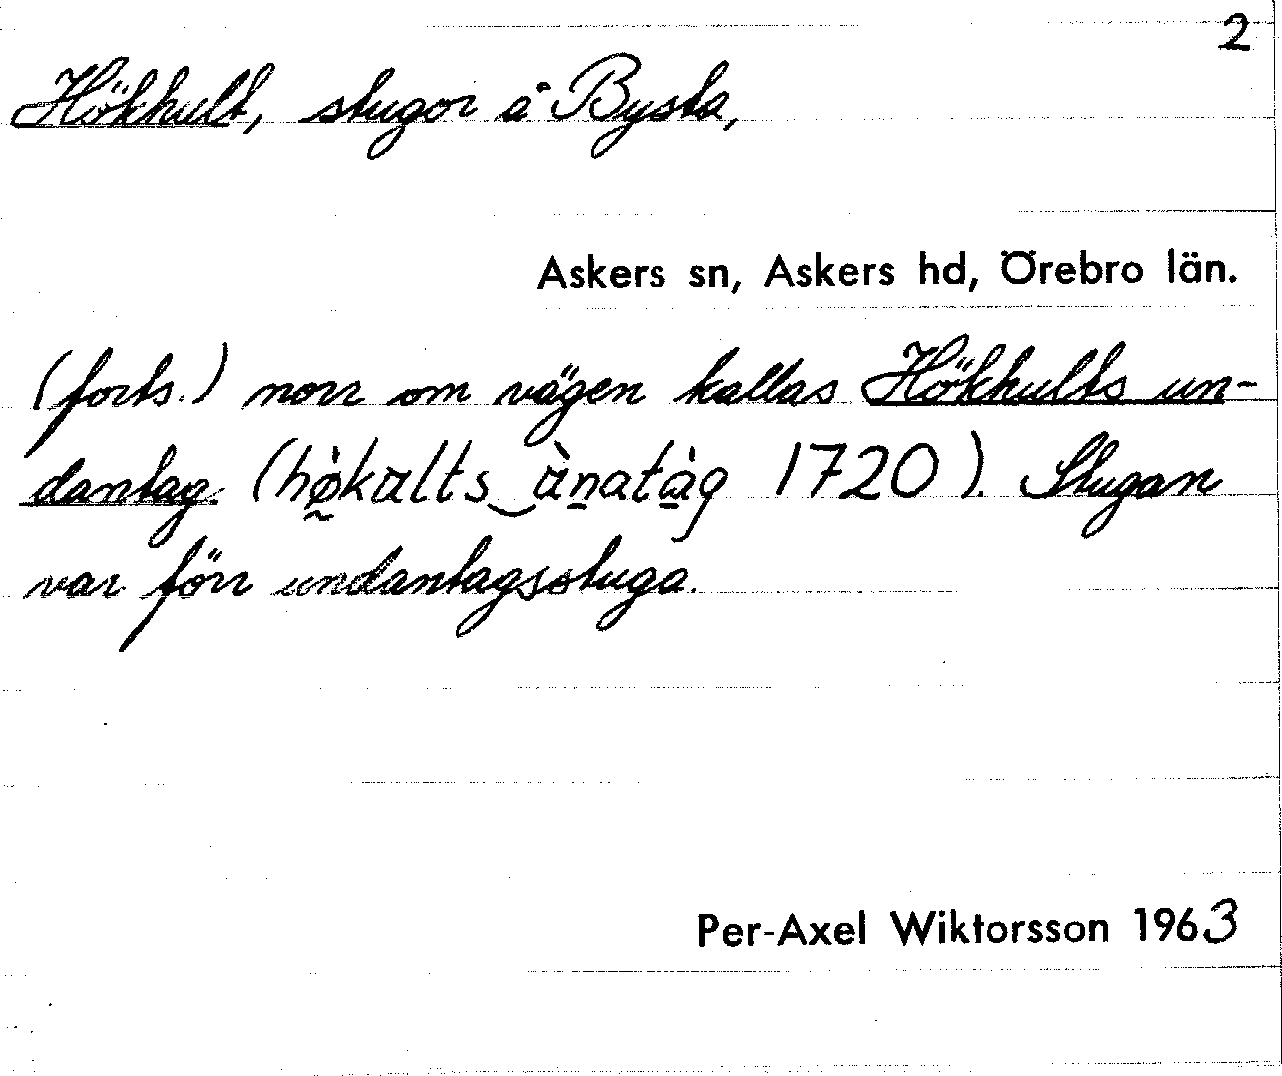 2
Hökhult, stugor å Bysta,
Askers sn, Askers hd, Örebro län.
(forts.) norr om vägen kallas Hökhults un-
dantag. (hø̀kalts ànatàg 1720). Stugan
var förr undantagsstuga.
Per-Axel Wiktorsson 1963